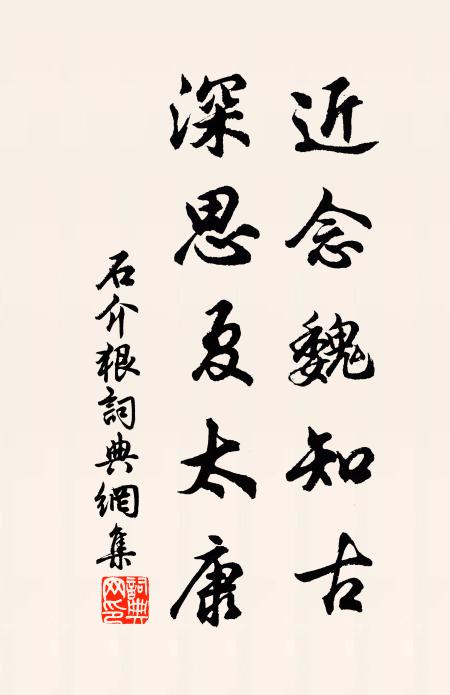 近念魏知古
深思夏太康
石介狠詞典網集
詞典網印